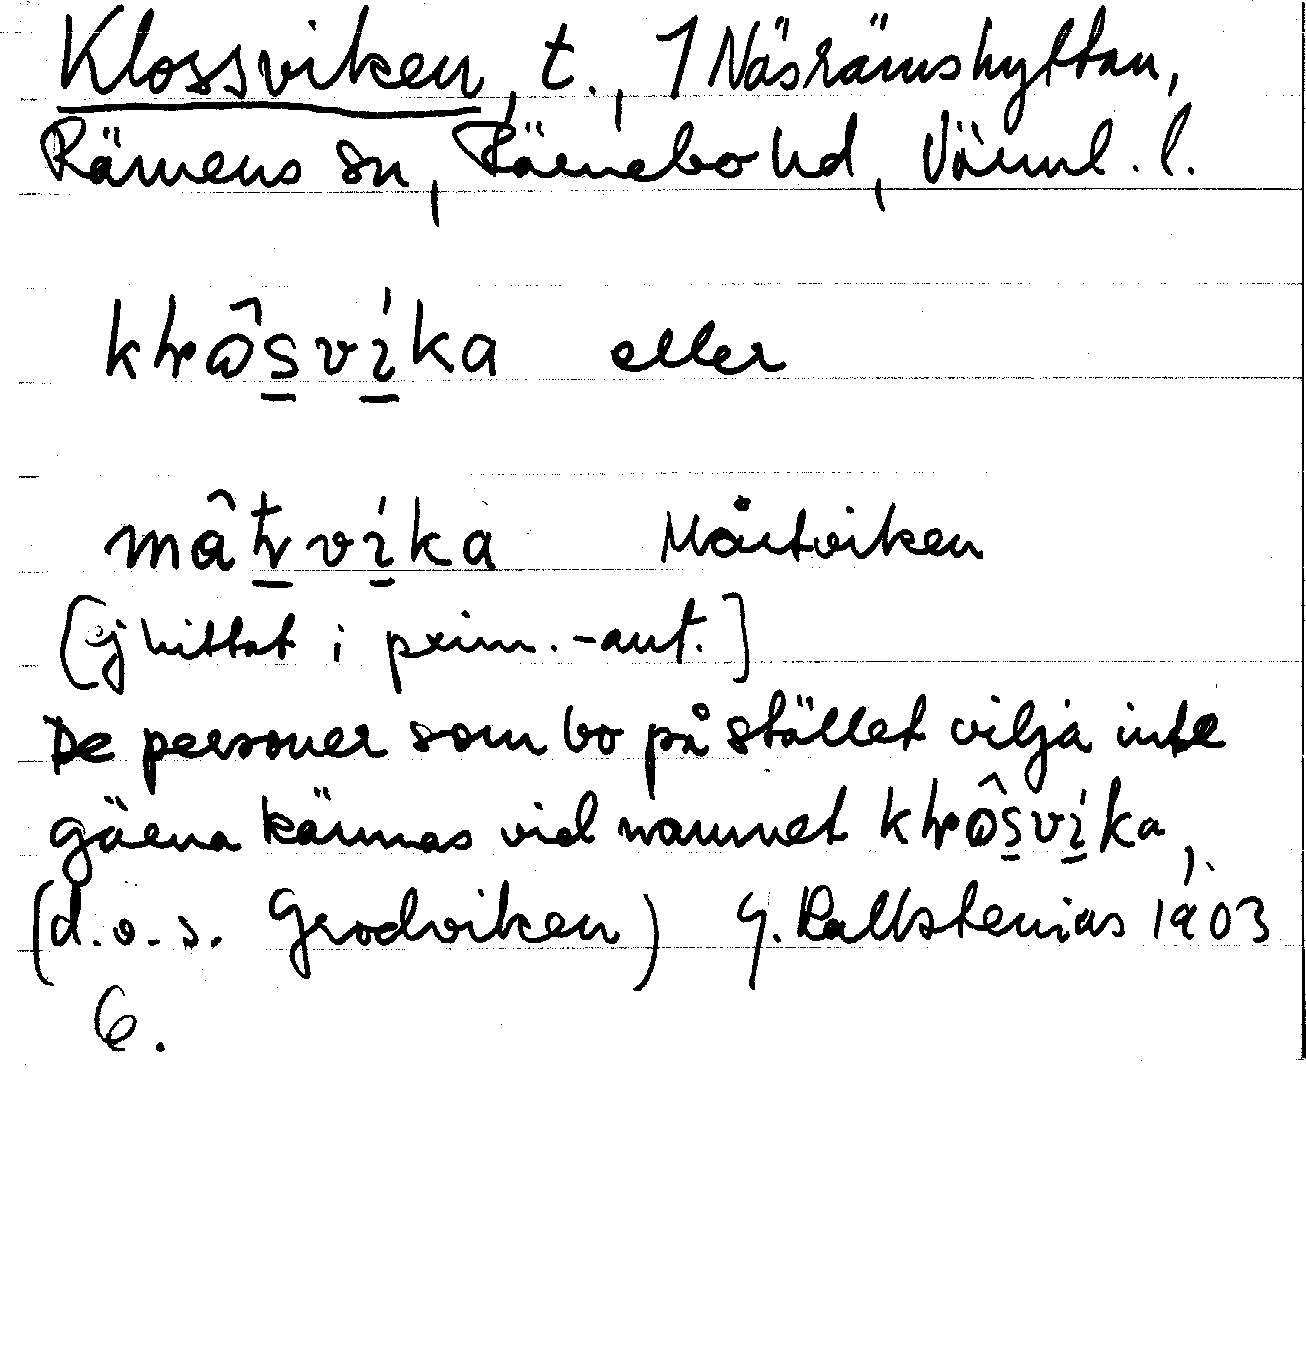 Klossviken, t., 1 Näsrämshyttan,
Rämens sn, Färnebo hd, Värml. l.
kƚω̂s̠ví̠ka eller
mât̠ví̠ka Mårtviken
[ej hittat i prim.-aut.]
De personer som bo på stället vilja inte
gärna kännas vid namnet kƚω̂s̠ví̠ka,
(d.o.s. Grodviken) G. Kallstenius 1903
6.